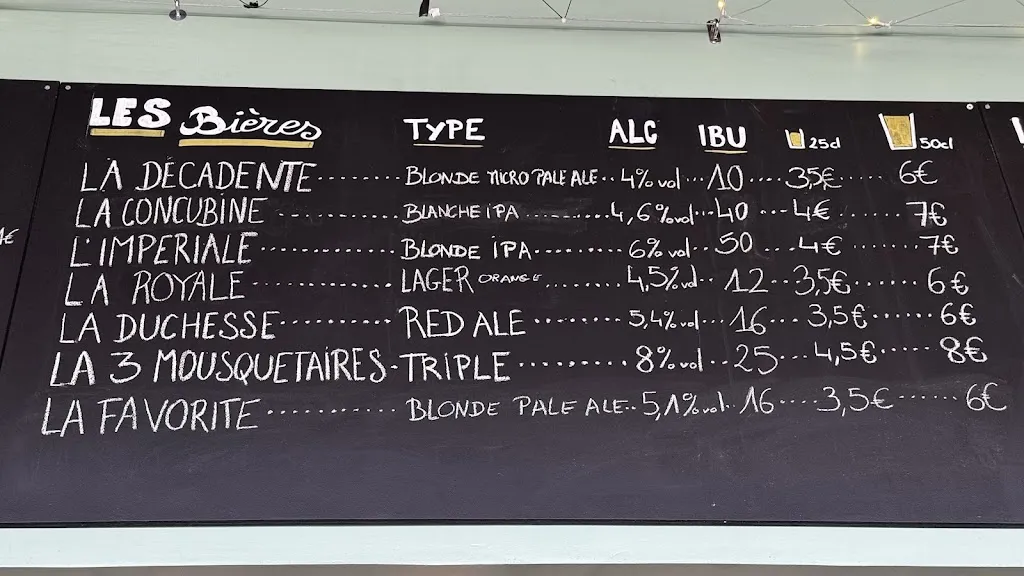 LES Bières TYPE ALC IBU 25cl 50cl
LA DÉCADENTE BLONDE MICRO PALE ALE 4%vol 10 3,5€ 6€
LA CONCUBINE BLANCHE IPA 4,6%vol 40 4€ 7€
L'IMPERIALE BLONDE IPA 6% vol 50 4€ 7€
LA ROYALE LAGER ORANGE 4,5%vol 12 3,5€ 6€
LA DUCHESSE RED ALE 5,4%vol 16 3,5€ 6€
LA 3 MOUSQUETAIRES TRIPLE 8%vol 25 4,5€ 8€
LA FAVORITE BLONDE PALE ALE 5,1%vol 16 3,5€ 6€